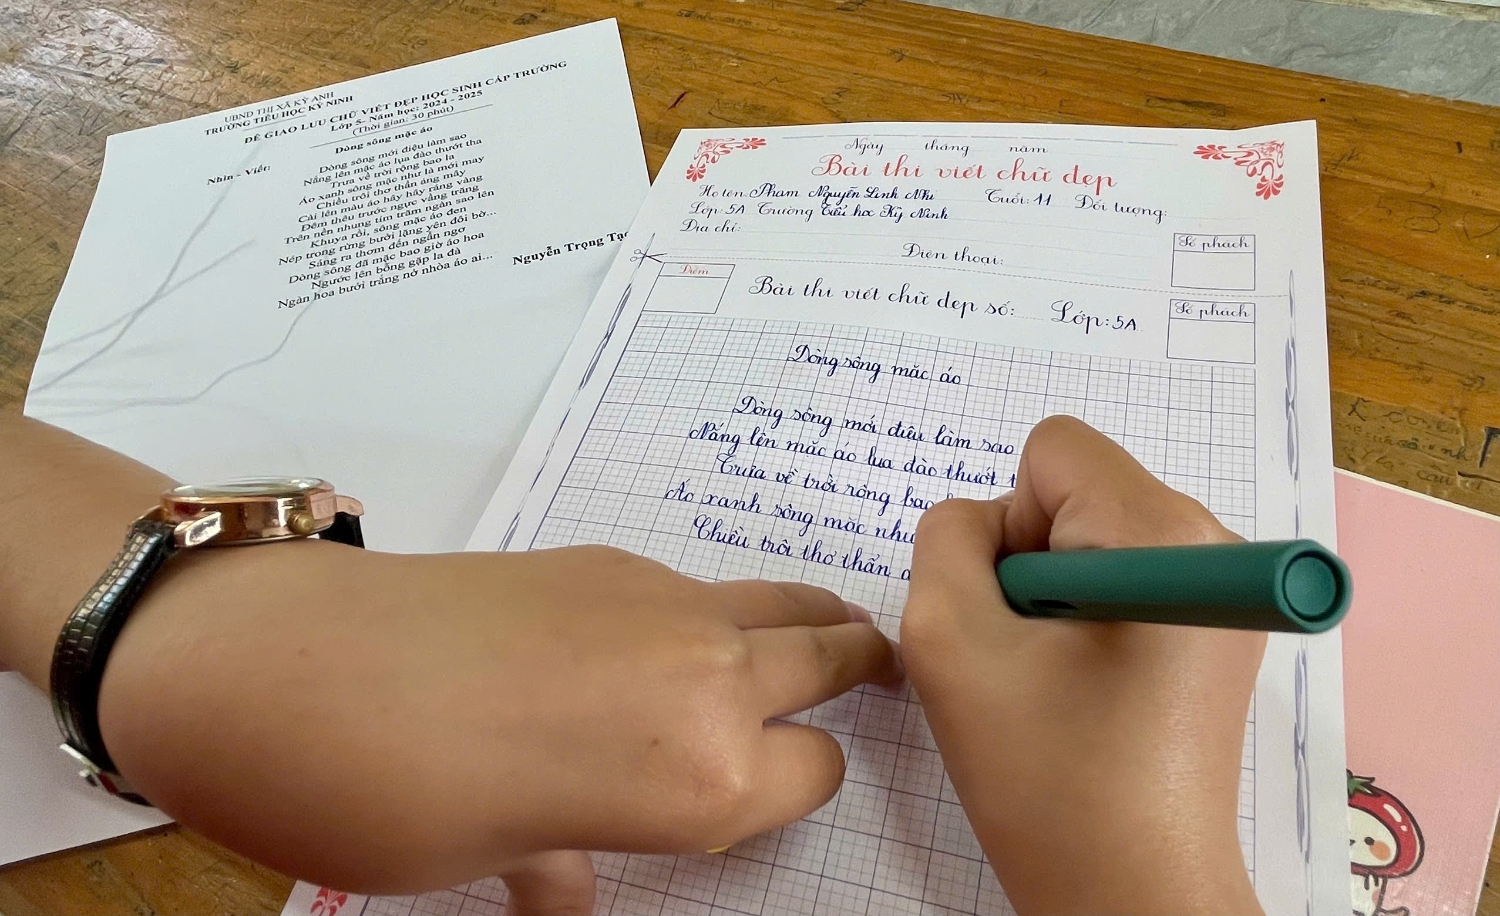 UBND THỊ XÃ KỲ ANH
TRƯỜNG TIỂU HỌC KỲ NINH
ĐỀ GIAO LƯU CHỮ VIẾT ĐẸP HỌC SINH CẤP TRƯỜNG
Lớp 5- Năm học: 2024 - 2025
(Thời gian: 30 phút)
Nhìn - Viết:
Dòng sông mặc áo
Dòng sông mới điệu làm sao
Nắng lên mặc áo lụa đào thướt tha
Trưa về trời rộng bao la
Áo xanh sông mặc như là mới may
Chiều trôi thơ thẩn áng mây
Cài lên màu áo hây hây ráng vàng
Đêm thêu trước ngực vầng trăng
Trên nền nhung tím trăm ngàn sao lên
Khuya rồi, sông mặc áo đen
Nép trong rừng bưởi lặng yên đôi bờ...
Sáng ra thơm đến ngẩn ngơ
Dòng sông đã mặc bao giờ áo hoa
Ngước lên bỗng gặp la đà
Ngàn hoa bưởi trắng nở nhòa áo ai...
Nguyễn Trọng Tạo
Ngày tháng năm
Bài thi viết chữ đẹp
Họ tên: Phạm Nguyễn Linh Nhi Tuổi: 11 Đối tượng:
Lớp: 5A Trường Tiểu học Kỳ Ninh
Địa chỉ:
Điện thoại:
Số phách
Điểm
Bài thi viết chữ đẹp số: Lớp: 5A
Số phách
Dòng sông mặc áo
Dòng sông mới điệu làm sao
Nắng lên mặc áo lụa đào thướt
Trưa về trời rộng bao
Áo xanh sông mặc như
Chiều trôi thơ thẩn